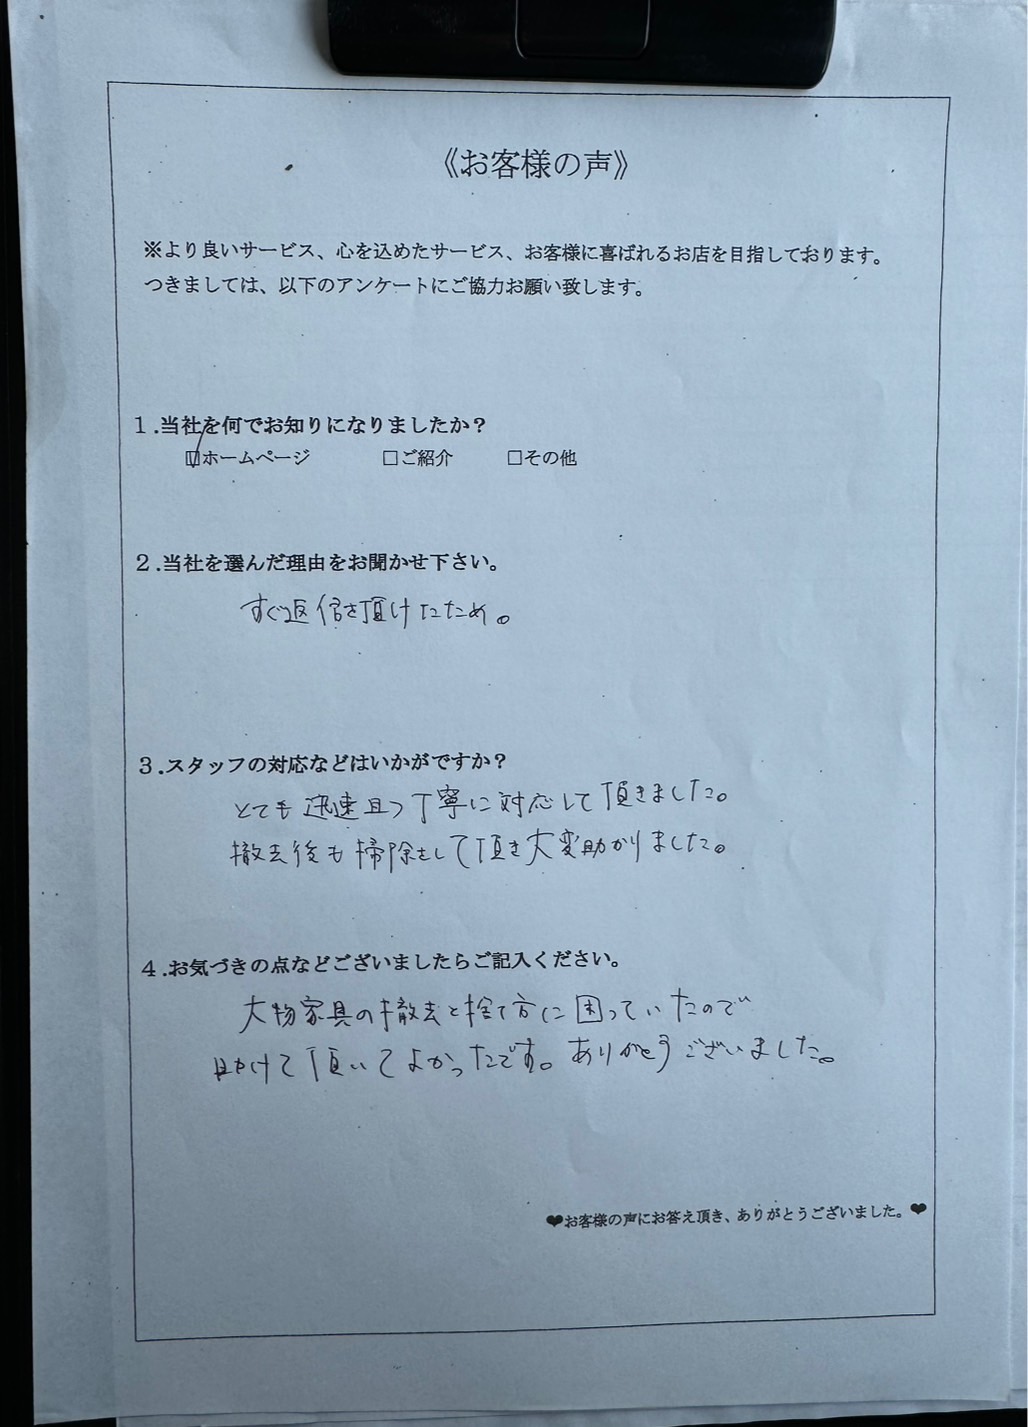 《お客様の声》
※より良いサービス、心を込めたサービス、お客様に喜ばれるお店を目指しております。
つきましては、以下のアンケートにご協力お願い致します。
１.当社を何でお知りになりましたか？
☑ホームページ　□ご紹介　□その他
２.当社を選んだ理由をお聞かせ下さい。
すぐ返信を頂けたため。
３.スタッフの対応などはいかがですか？
とても迅速且つ丁寧に対応して頂きました。
撤去後も掃除をして頂き大変助かりました。
４.お気づきの点などございましたらご記入ください。
大物家具の撤去と捨て方に困っていたので
助けて頂いてよかったです。ありがとうございました。
❤お客様の声にお答え頂き、ありがとうございました。❤